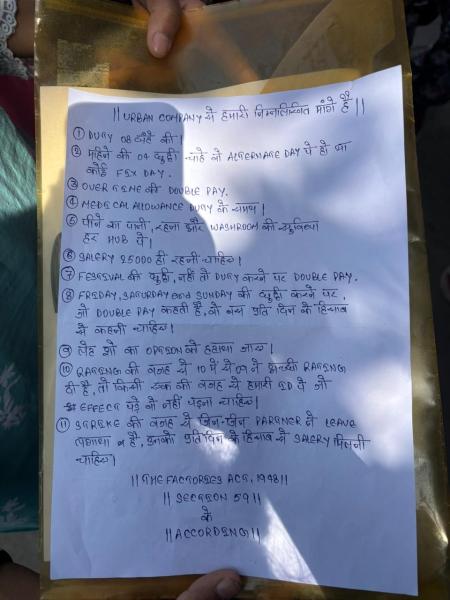 ||URBAN COMPANY से हमारी निम्नलिखित मांगे है||
① DURY 08 घंटे की।
② महिने की 04 छुट्टी चाहे वो ALTERNATE DAY पे हो या
कोई FIX DAY.
③ OVER TIME की DOUBLE PAY.
④ MEDICAL ALLOWANCE DURY के समय।
⑤ पीने का पानी, रहना और WASHROOM की सुविधा
हर HUB पे।
⑥ SALERY 25000 ही रहनी चाहिए।
⑦ FESTIVAL की छुट्टी, नहीं तो DUTY करने पर DOUBLE PAY.
⑧ FRIDAY, SATURDAY and SUNDAY की छुट्टी करने पर,
जो DOUBLE PAY कटती है, वो बस प्रति दिन के हिसाब
से कटनी चाहिए।
⑨ लेह शो का OPTION को हटाया जाए।
⑩ RATING की वजह से 10 में से 09 ने अच्छी RATING
दी है, तो किसी एक की वजह से हमारी ID पे जो
EFFECT पड़े वो नहीं पड़ना चाहिए।
⑪ STRIKE की वजह से जिन-जिन PARTNER ने LEAVE
लगाया है, उनको प्रतिदिन के हिसाब से SALERY मिलनी
चाहिए।
||THE FACTORIES ACT, 1948||
||SECTION 59||
के
||ACCORDING||